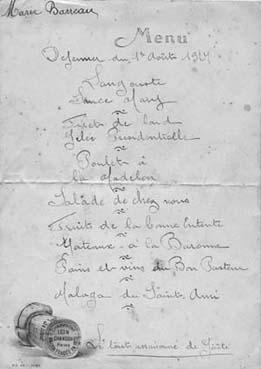 Marie Barreau
Menu
Déjeuner du 1er Août 1917
Langouste
Sauce
Filet de lard
Gelée Présidentielle
Poulet à
la Madelon
Salade de chez nous
Fruits de la bonne Entente
Gâteaux à la Baronne
Pains et vins du Bon Pasteur
Malaga du Saint Ami
LEON CHANDON
Le tout assaisonné de Gaîté